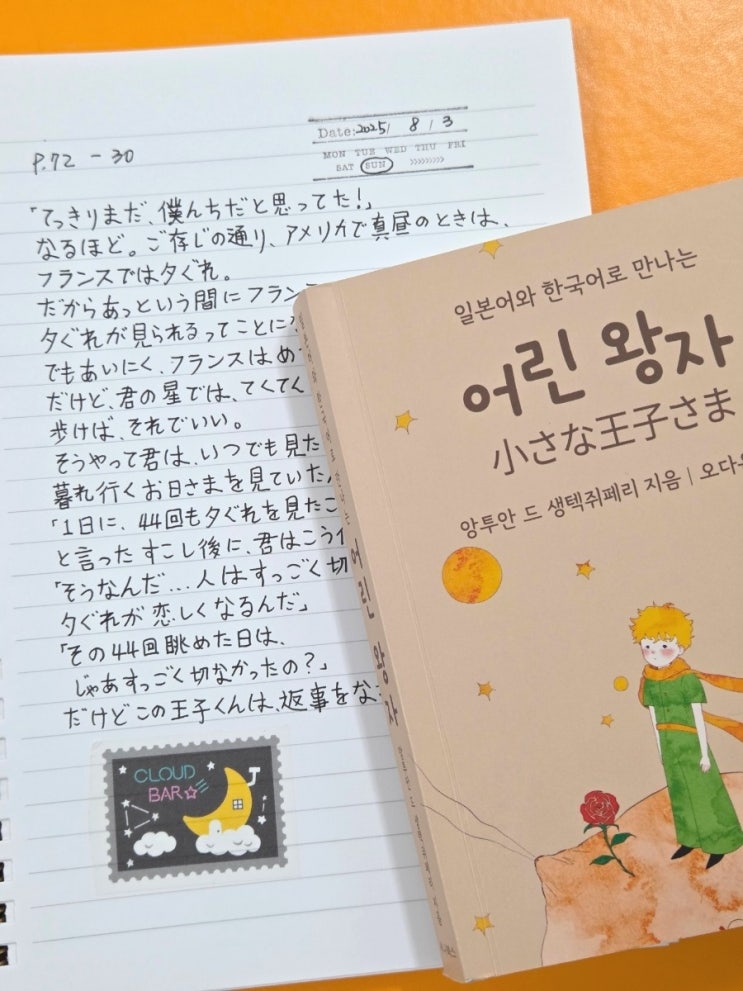 P.72 - 30
Date: 2025/ 8 / 3
MON TUE WED THU FRI
SAT SUN
「てっきりまだ、僕んちだと思ってた！」
なるほど。ご存じの通り、アメリカで真昼のときは、
フランスでは夕ぐれ。
だからあっという間にフラン
夕ぐれが見られるってことに
でもあいにく、フランスはめ
だけど、君の星では、てくてく
歩けば、それでいい。
そうやって君は、いつでも見た
暮れ行くお日さまを見ていた
「1日に、44回も夕ぐれを見たこ
と言ったすこし後に、君はこう
「そうなんだ...人はすっごく切
夕ぐれが恋しくなるんだ」
「その44回眺めた日は、
じゃあすっごく切なかったの？」
だけどこの王子くんは、返事をな
CLOUD
BAR
일본어와 한국어로 만나는
어린 왕자
小さな王子さま
앙투안 드 생텍쥐페리 지음 | 오다
어린 왕자